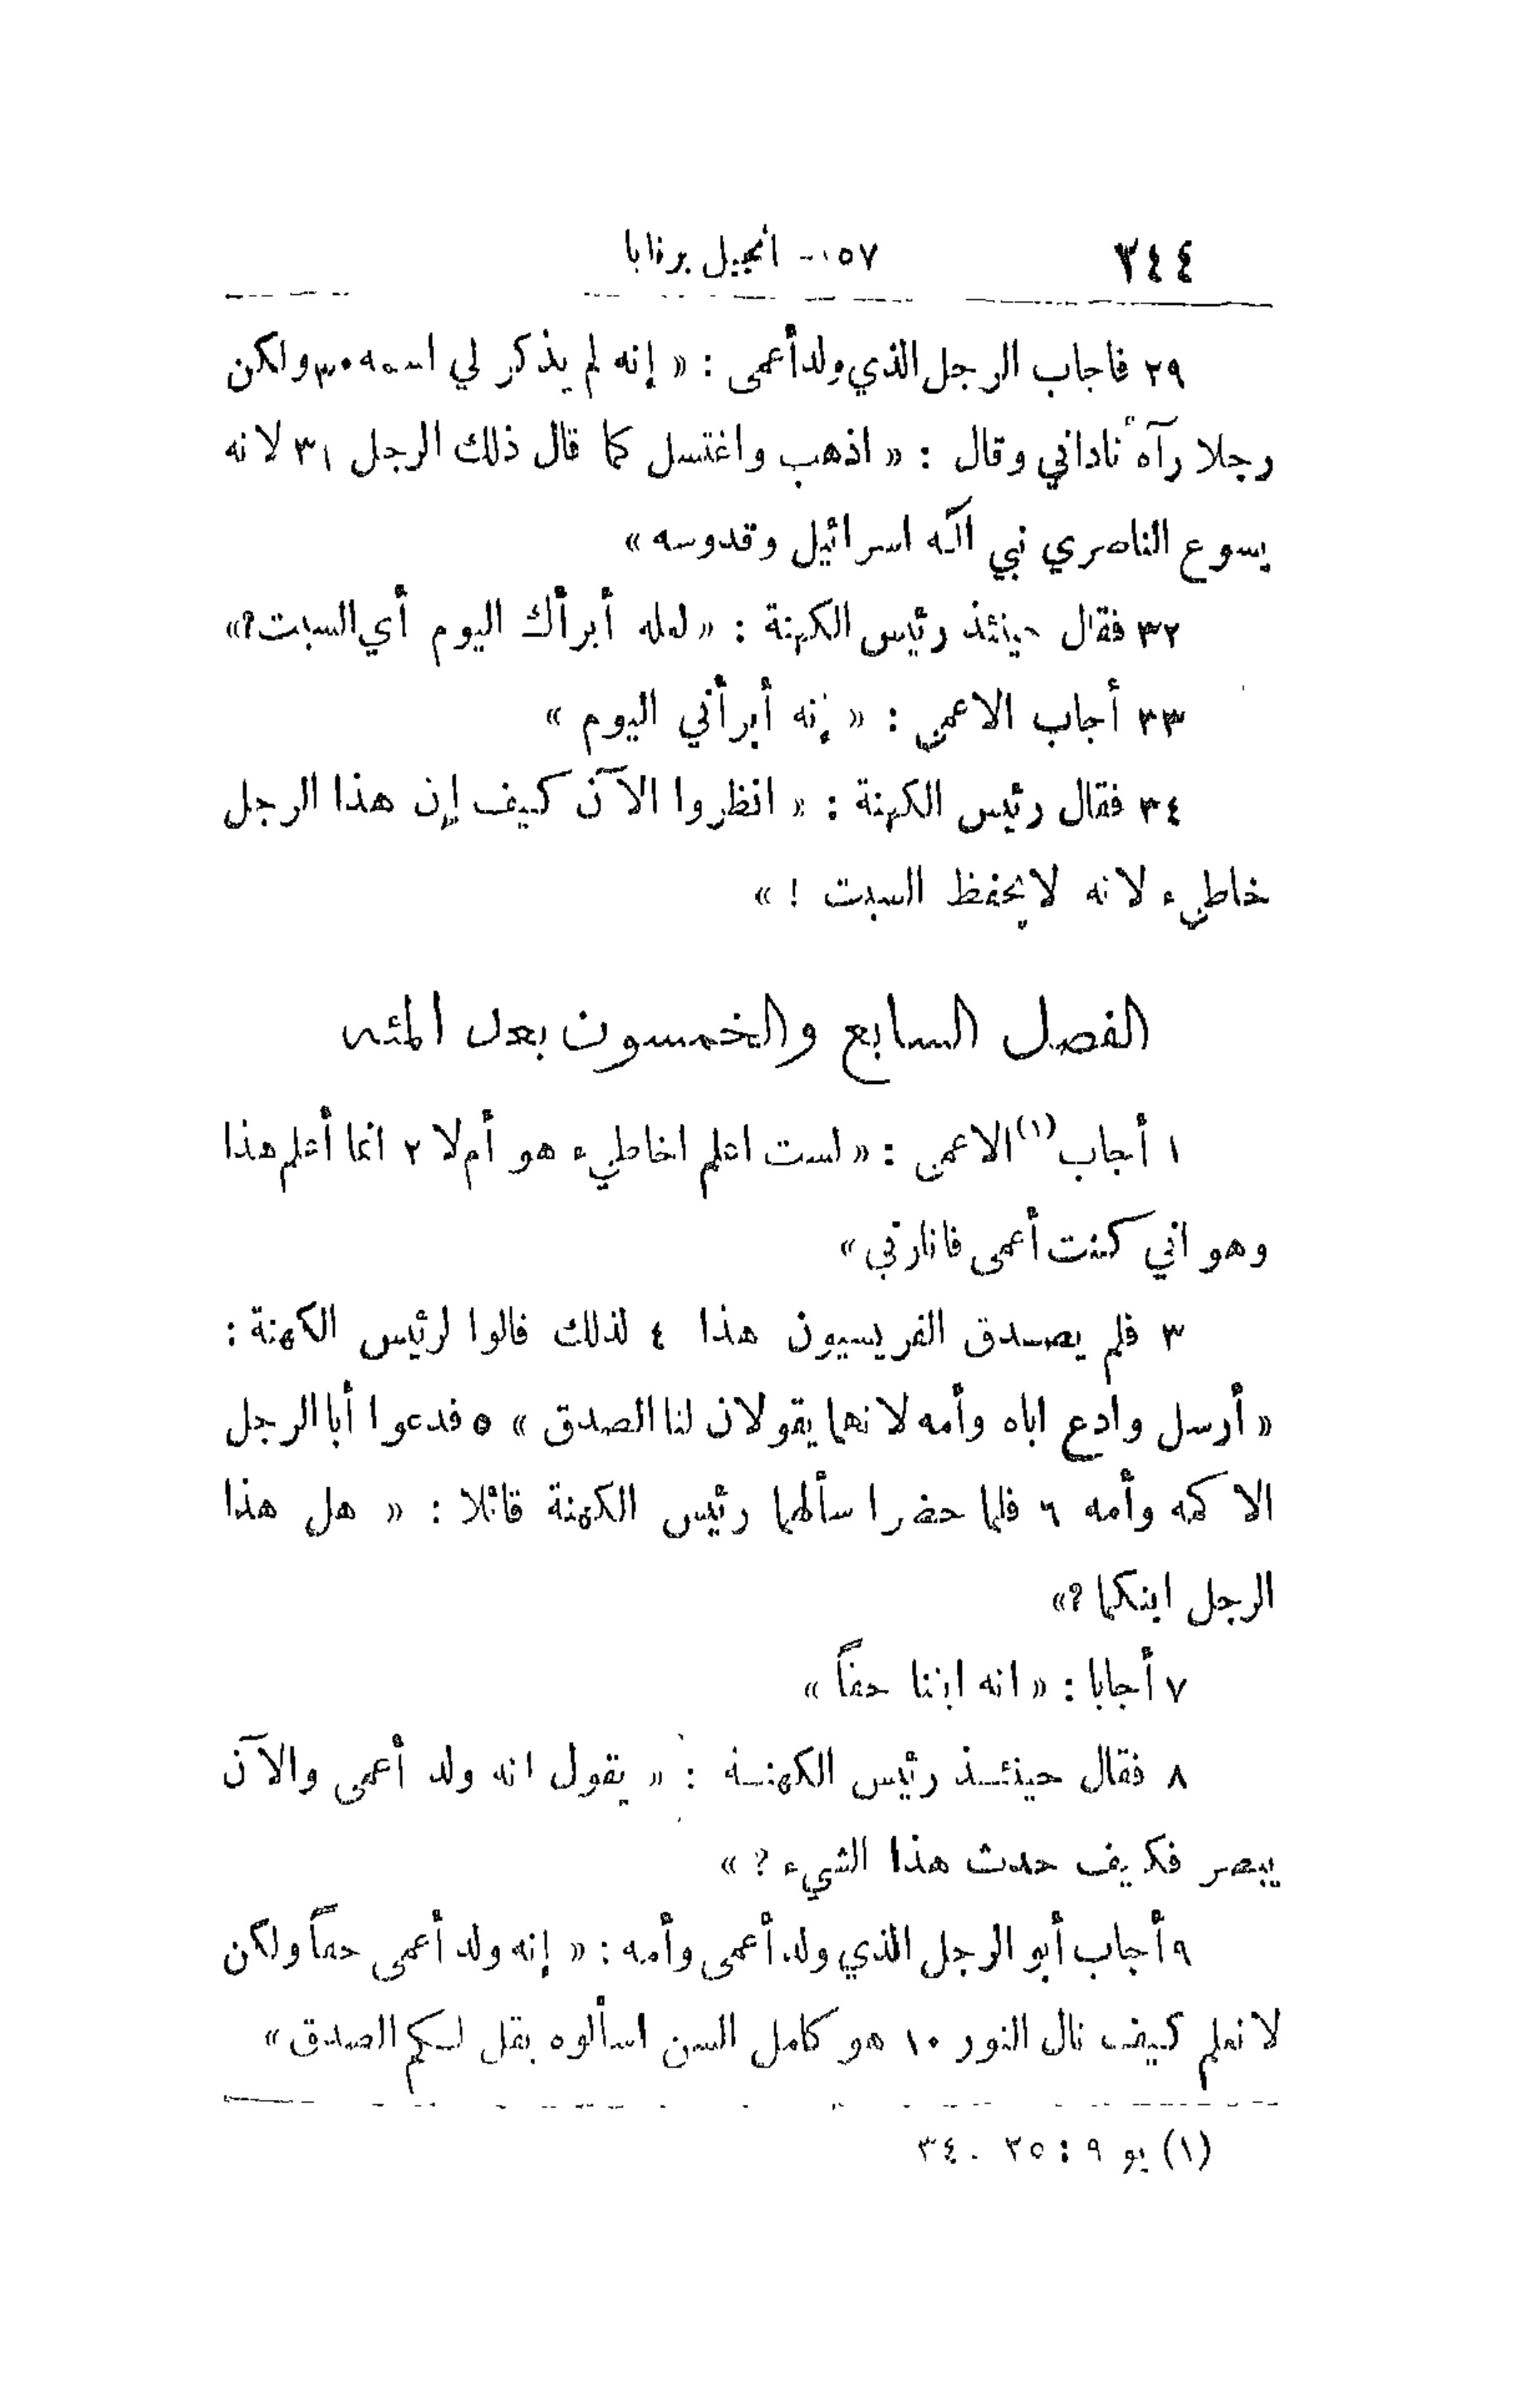 ٢٤٤ ١٥٧ - انجيل برنابا
٢٩ فاجاب الرجل الذي ولد أعمى : « إنه لم يذكر لي اسمه ٣٠ ولكن
رجلا رآه ناداني وقال : « اذهب واغتسل كما قال ذلك الرجل ٣١ لانه
يسوع الناصري نبي اله اسرائيل وقدوسه »
٣٢ فقال حينئذ رئيس الكهنة : « لعله أبرأك اليوم أي السبت؟»
٣٣ أجاب الاعمى : « إنه أبرأني اليوم »
٣٤ فقال رئيس الكهنة : « انظروا الآن كيف إن هذا الرجل
خاطيء لانه لا يحفظ السبت ! »
الفصل السابع والخمسون بعد المئه
١ أجاب (١) الاعمى : « لست اعلم اخاطيء هو أم لا ٢ انما أعلم هذا
وهو اني كنت أعمى فانارني »
٣ فلم يصدق الفريسيون هذا ٤ لذلك قالوا لرئيس الكهنة :
« أرسل وادع اباه وأمه لانهما يقولان لنا الصدق » ٥ فدعوا أبا الرجل
الاكمه وأمه ٦ فلما حضرا سألهما رئيس الكهنة قائلا : « هل هذا
الرجل ابنكما ؟»
٧ أجابا : « انه ابننا حقاً »
٨ فقال حينئذ رئيس الكهنة : « يقول انه ولد أعمى والآن
يبصر فكيف حدث هذا الشيء ؟ »
٩ أجاب أبو الرجل الذي ولد أعمى وأمه : « إنه ولد أعمى حقاً ولكن
لا نعلم كيف نال النور ١٠ هو كامل السن اسألوه يقل لكم الصدق »
(١) يو ٩ : ٢٥ - ٣٤